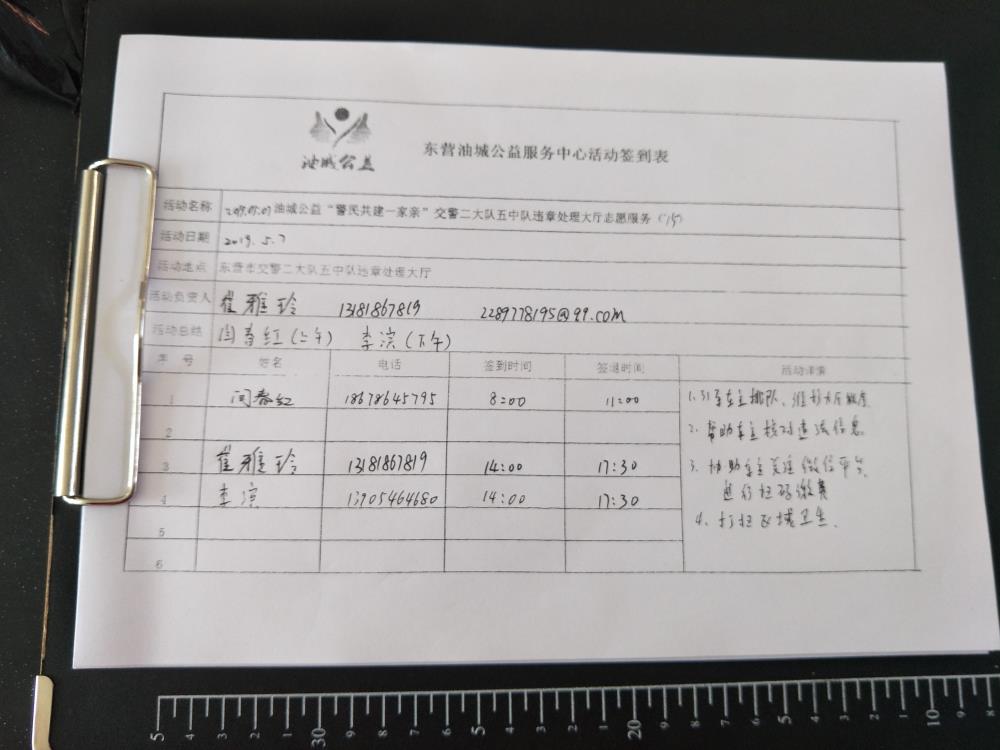 油城公益
东营油城公益服务中心活动签到表
活动名称 2019.05.07油城公益“警民共建一家亲”交警二大队五中队违章处理大厅志愿服务（15）
活动日期 2019.5.7
活动地点 东营市交警二大队五中队违章处理大厅
活动负责人 崔雅玲 13181867819 2289778195@qq.com
活动总结 闫春红（上午） 李滨（下午）
序号 姓名 电话 签到时间 签退时间 活动详情
1 闫春红 18678645795 8:00 11:00
2
3 崔雅玲 13181867819 14:00 17:30
4 李滨 13705464680 14:00 17:30
5
6
1. 引导车主排队、维持大厅秩序
2. 帮助车主核对违法信息
3. 协助车主关注微信平台
进行扫码缴费
4. 打扫区域卫生.
5 4 3 2 1 30 4 3 2 1 5 4 3 2 1 20 4 3 2 1 5 4 3 2 1 10 9 8